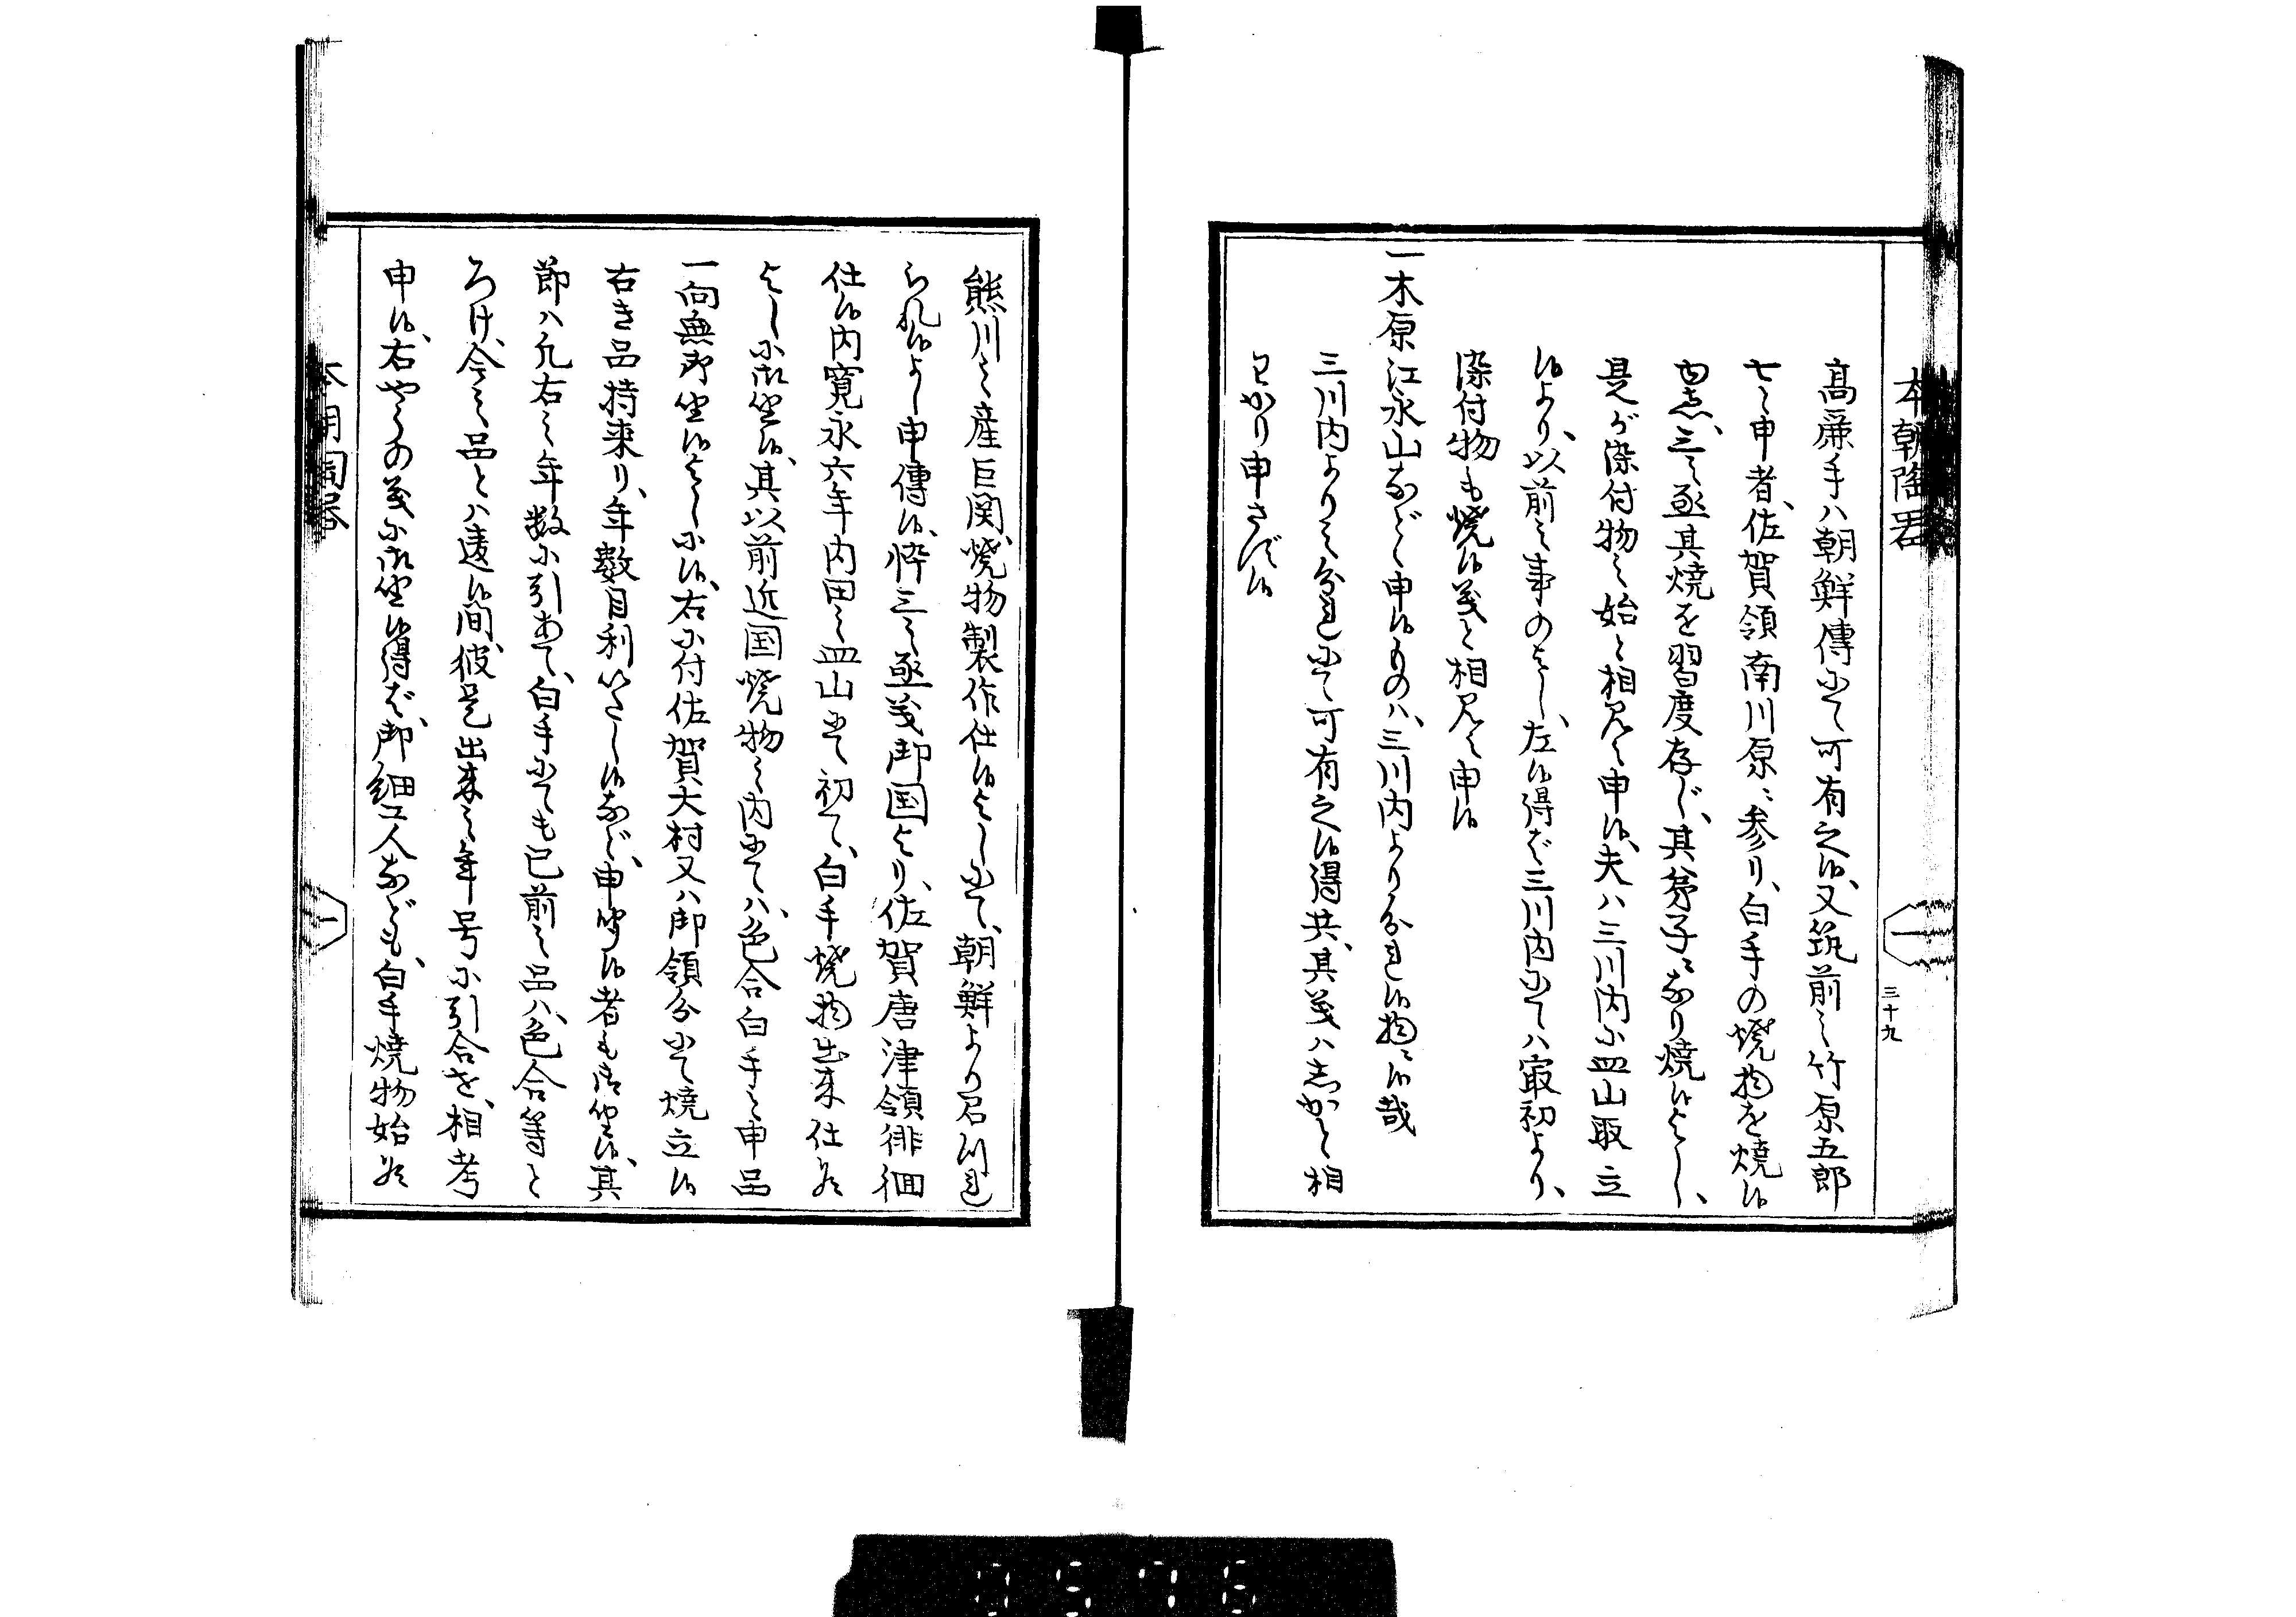 本朝陶器
三十九
高麗手ハ朝鮮傳ニて可有之候、又筑前之竹原五郎
七と申者、佐賀領南川原ニ参り、白手の焼物を焼候
由志、三之亟其焼を習度存じ、其弟子ニなり焼候よし、
是が染付物之始と相見へ申候、夫ハ三川内に皿山取立
候より、以前之事のよし、左候得ば三川内ニてハ最初より、
染付物も焼候義と相見へ申候
一木原江永山などと申候ものハ、三川内より分れ候物ニ候哉
三川内よりの分れニて可有之候得共、其義ハ志かと相
わかり申さず候
熊川之産巨関、焼物製作仕候よしニて、朝鮮より召つれ
られ候よし申傳候、悴三之亟義御国より、佐賀唐津領徘徊
仕候内寛永六年内田之皿山ニて初て、白手焼物出来仕候
よしに御坐候、其以前近国焼物之内ニてハ、色合白手と申品
一向無御坐候よしに候、右に付佐賀大村又ハ御領分ニて焼立候
右き品持来り、年數目利いたし候など、申聞候者も御坐候、其
節ハ凡右之年数に引あて、白手ニても已前之品ハ、色合等と
ろけ、今之品とハ違候間、彼是出来之年号に引合せ、相考
申候、右やうの義に御坐候得ば、御細工人なども、白手焼物始候
本朝陶器
一